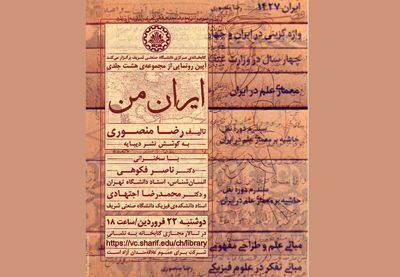 کتابخانه‌ی مرکزی دانشگاه صنعتی شریف برگزار می‌کند
آیین رونمایی از مجموعه‌ی هشت جلدی
ایران من
تالیف رضا منصوری
به کوشش نشر دیبایه
با سخنرانی
دکتر ناصر فکوهی
انسان‌شناس، استاد دانشگاه تهران
و دکتر محمدرضا اجتهادی
استاد دانشکده‌ی فیزیک دانشگاه صنعتی شریف
دوشنبه ۲۲ فروردین/ساعت ۱۸
در تالار مجازی کتابخانه به نشانی
https://vc.sharif.edu/ch/library
شرکت برای عموم علاقه‌مندان آزاد است
ایران ۱۴۲۷
رضا منصوری
واژه گزینی در ایران و جهان
چهار سال در وزارت عتف
معماری علم در ایران
سندرم دوره نقل
حاشیه بر معماری علم در ایران
سندرم دوره نقل
حاشیه بر معماری علم در ایران
مبانی علم و طراحی مفهومی
مبانی تفکر در علوم فیزیکی
رضا منصوری